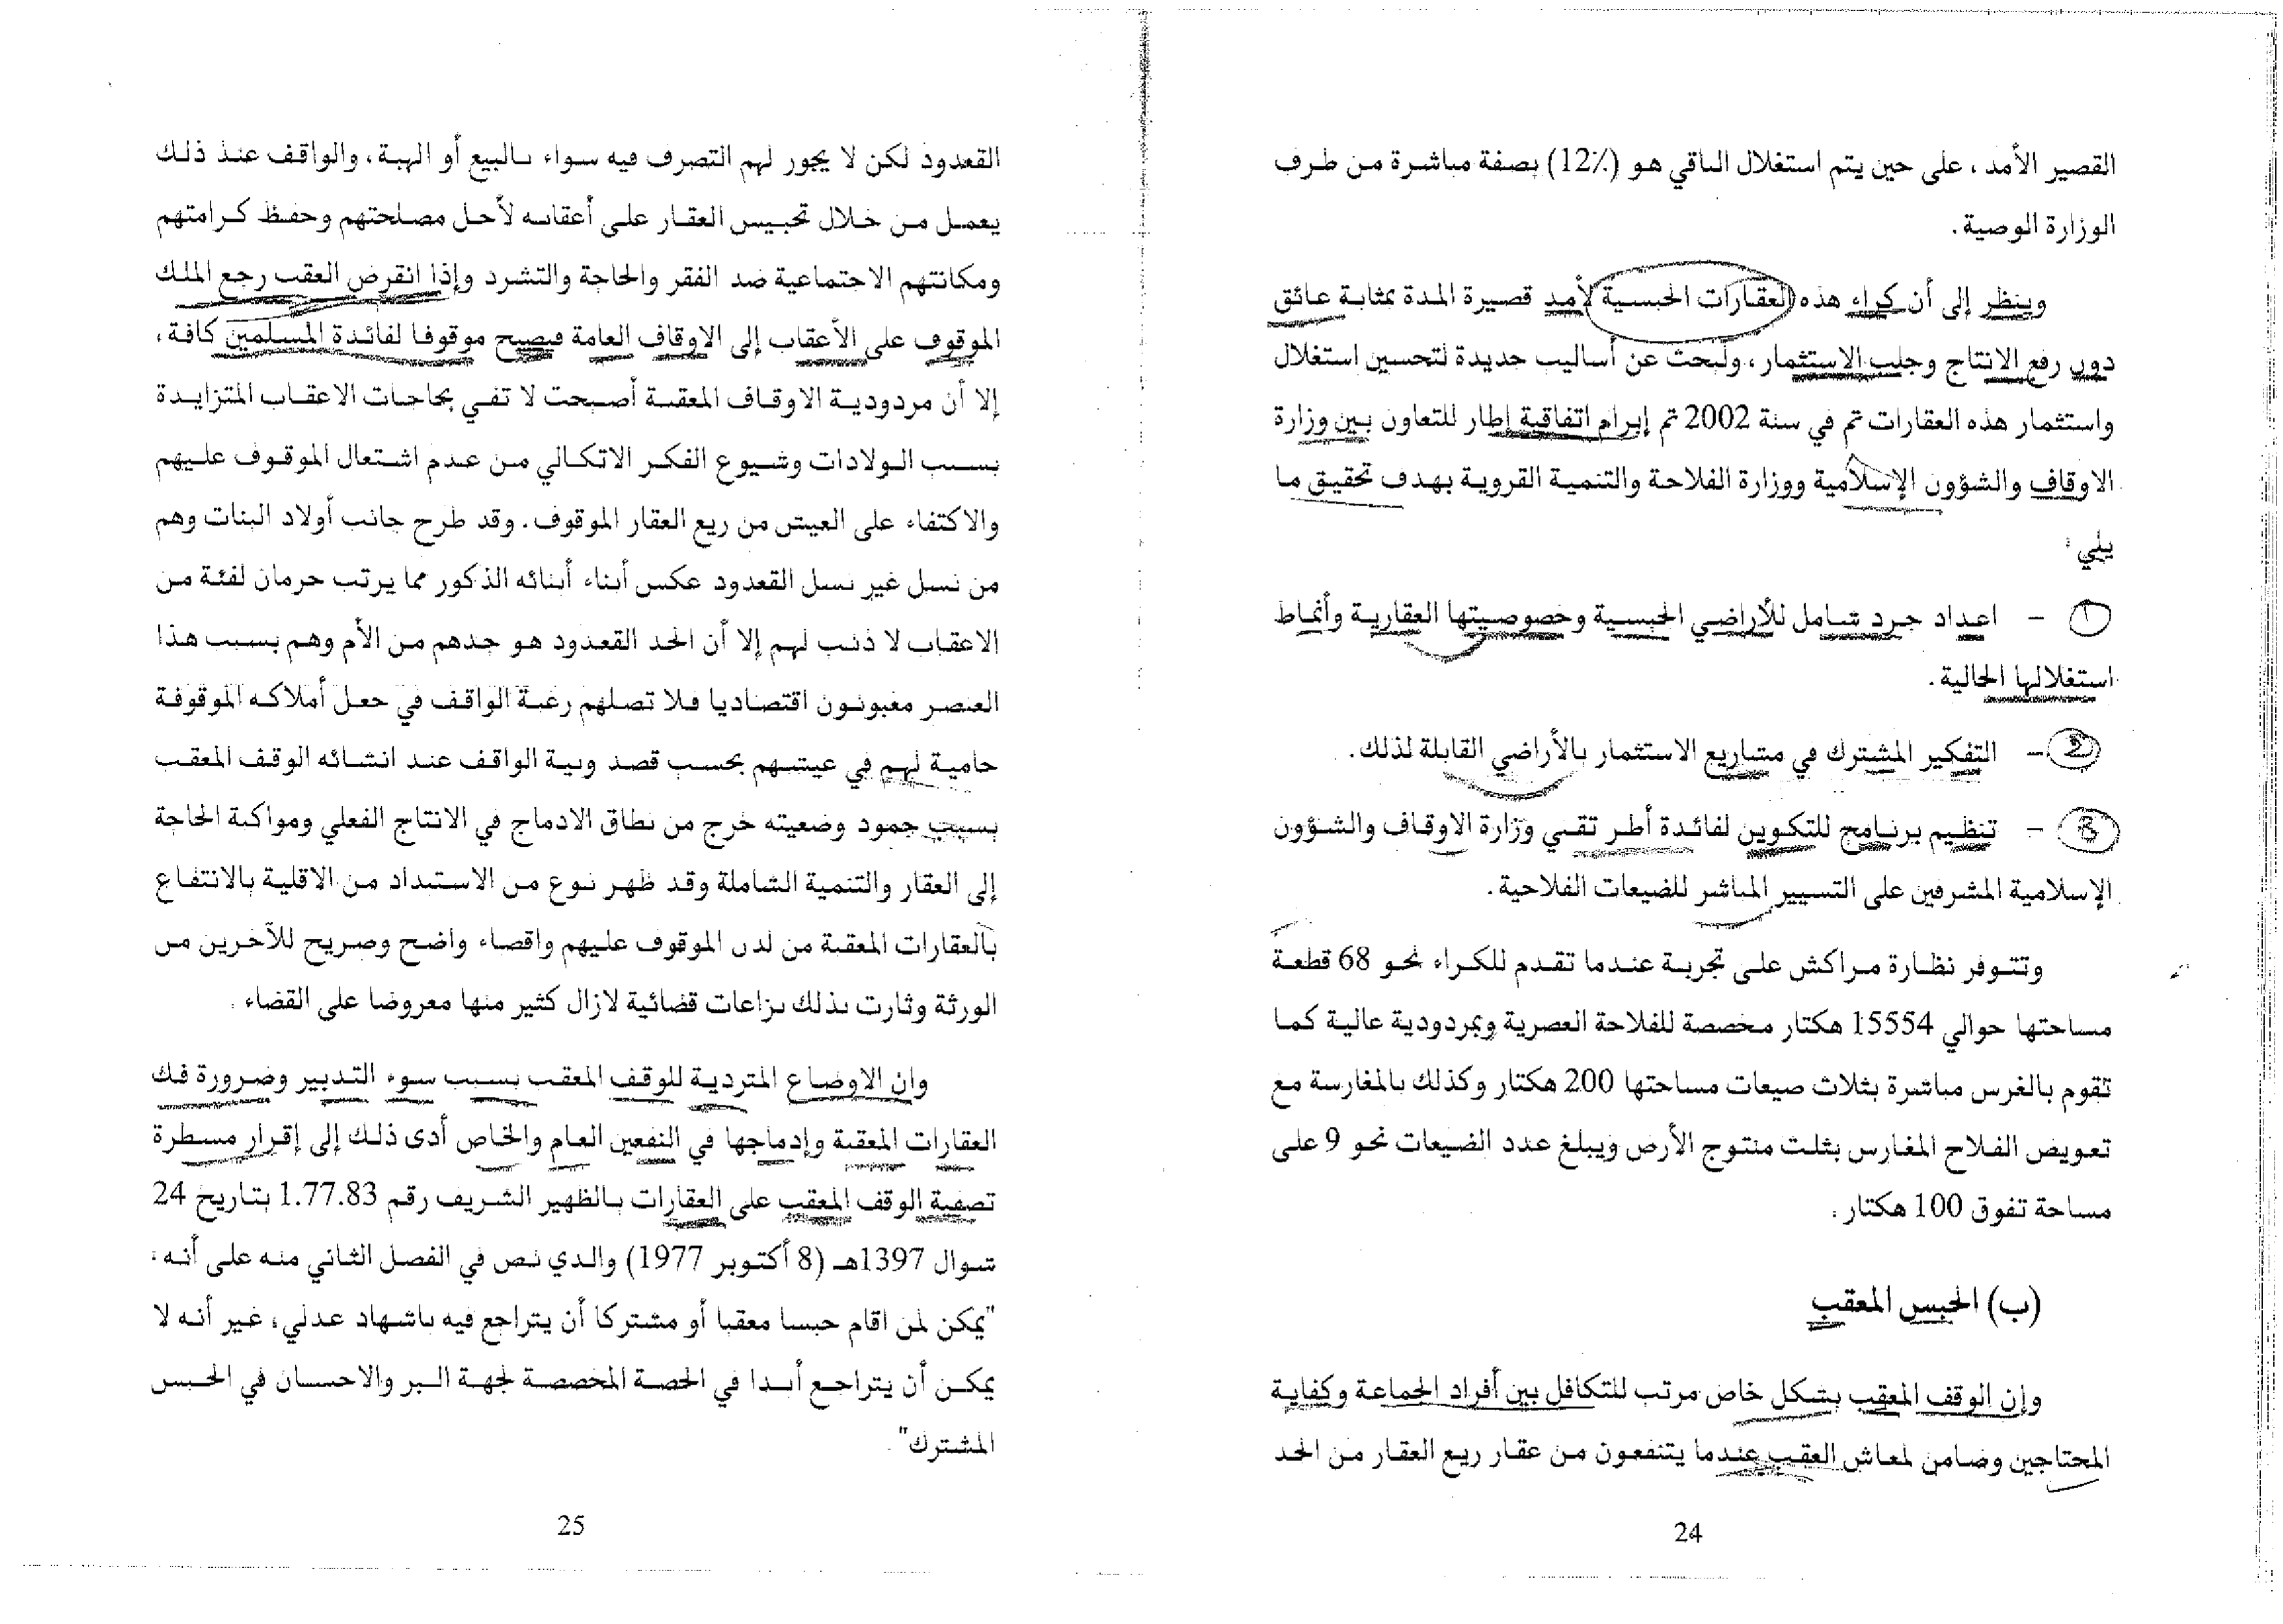 القصير الأمد، على حين يتم استغلال الباقي هو (12٪) بصفة مباشرة من طرف
الوزارة الوصية.
وينظر إلى أن كراء هذه العقارات الحبسية لأمد قصيرة المدة بمثابة عائق
دون رفع الانتاج وجلب الاستثمار، ولبحث عن أساليب جديدة لتحسين استغلال
واستثمار هذه العقارات تم في سنة 2002 تم إبرام اتفاقية إطار للتعاون بين وزارة
الاوقاف والشؤون الإسلامية ووزارة الفلاحة والتنمية القروية بهدف تحقيق ما
يلي:
1 - اعداد جرد شامل للأراضي الحبسية وخصوصيتها العقارية وأنماط
استغلالها الحالية.
2 - التفكير المشترك في مشاريع الاستثمار بالأراضي القابلة لذلك.
3 - تنظيم برنامج للتكوين لفائدة أطر تقني وزارة الاوقاف والشؤون
الإسلامية المشرفين على التسيير المباشر للضيعات الفلاحية.
وتتوفر نظارة مراكش على تجربة عندما تقدم للكراء نحو 68 قطعة
مساحتها حوالي 15554 هكتار مخصصة للفلاحة العصرية وبمردودية عالية كما
تقوم بالغرس مباشرة بثلاث ضيعات مساحتها 200 هكتار وكذلك بالمغارسة مع
تعويض الفلاح المغارس بثلث منتوج الأرض ويبلغ عدد الضيعات نحو 9 على
مساحة تفوق 100 هكتار.
(ب) الحبس المعقب
وإن الوقف المعقب بشكل خاص مرتب للتكافل بين أفراد الجماعة وكفاية
المحتاجين وضامن لمعاش العقب عندما يتنفعون من عقار ريع العقار من الحد
24
القعدود لكن لا يجور لهم التصرف فيه سواء بالبيع أو الهبة، والواقف عند ذلك
يعمل من خلال تحبيس العقار على أعقابه لأجل مصلحتهم وحفظ كرامتهم
ومكانتهم الاجتماعية ضد الفقر والحاجة والتشرد وإذا انقرض العقب رجع الملك
الموقوف على الأعقاب إلى الاوقاف العامة فيصبح موقوفا لفائدة المسلمين كافة،
إلا أن مردودية الاوقاف المعقبة أصبحت لا تفي بحاجات الاعقاب المتزايدة
بسبب الولادات وشيوع الفكر الاتكالي من عدم اشتعال الموقوف عليهم
والاكتفاء على العيش من ريع العقار الموقوف. وقد طرح جانب أولاد البنات وهم
من نسل غير نسل القعدود عكس أبناء أبنائه الذكور مما يرتب حرمان لفئة من
الاعقاب لا ذنب لهم إلا أن الحد القعدود هو جدهم من الأم وهم بسبب هذا
العنصر مغبونون اقتصاديا فلا تصلهم رغبة الواقف في جعل أملاكه الموقوفة
حامية لهم في عيشهم بحسب قصد ونية الواقف عند انشائه الوقف المعقب
بسبب جمود وضعيته خرج من نطاق الادماج في الانتاج الفعلي ومواكبة الحاجة
إلى العقار والتنمية الشاملة وقد ظهر نوع من الاستبداد من الاقلية بالانتفاع
بالعقارات المعقبة من لدن الموقوف عليهم واقصاء واضح وصريح للآخرين من
الورثة وثارت بذلك نزاعات قضائية لازال كثير منها معروضا على القضاء.
وان الاوضاع المتردية للوقف المعقب بسبب سوء التدبير وضرورة فك
العقارات المعقبة وإدماجها في النفعين العام والخاص أدى ذلك إلى إقرار مسطرة
تصفية الوقف المعقب على العقارات بالظهير الشريف رقم 1.77.83 بتاريخ 24
شوال 1397هـ (8 أكتوبر 1977) والدي نص في الفصل الثاني منه على أنه:
"يمكن لمن اقام حبسا معقبا أو مشتركا أن يتراجع فيه باشهاد عدلي، غير أنه لا
يمكن أن يتراجع أبدا في الحصة المخصصة لجهة البر والاحسان في الحبس
المشترك".
25